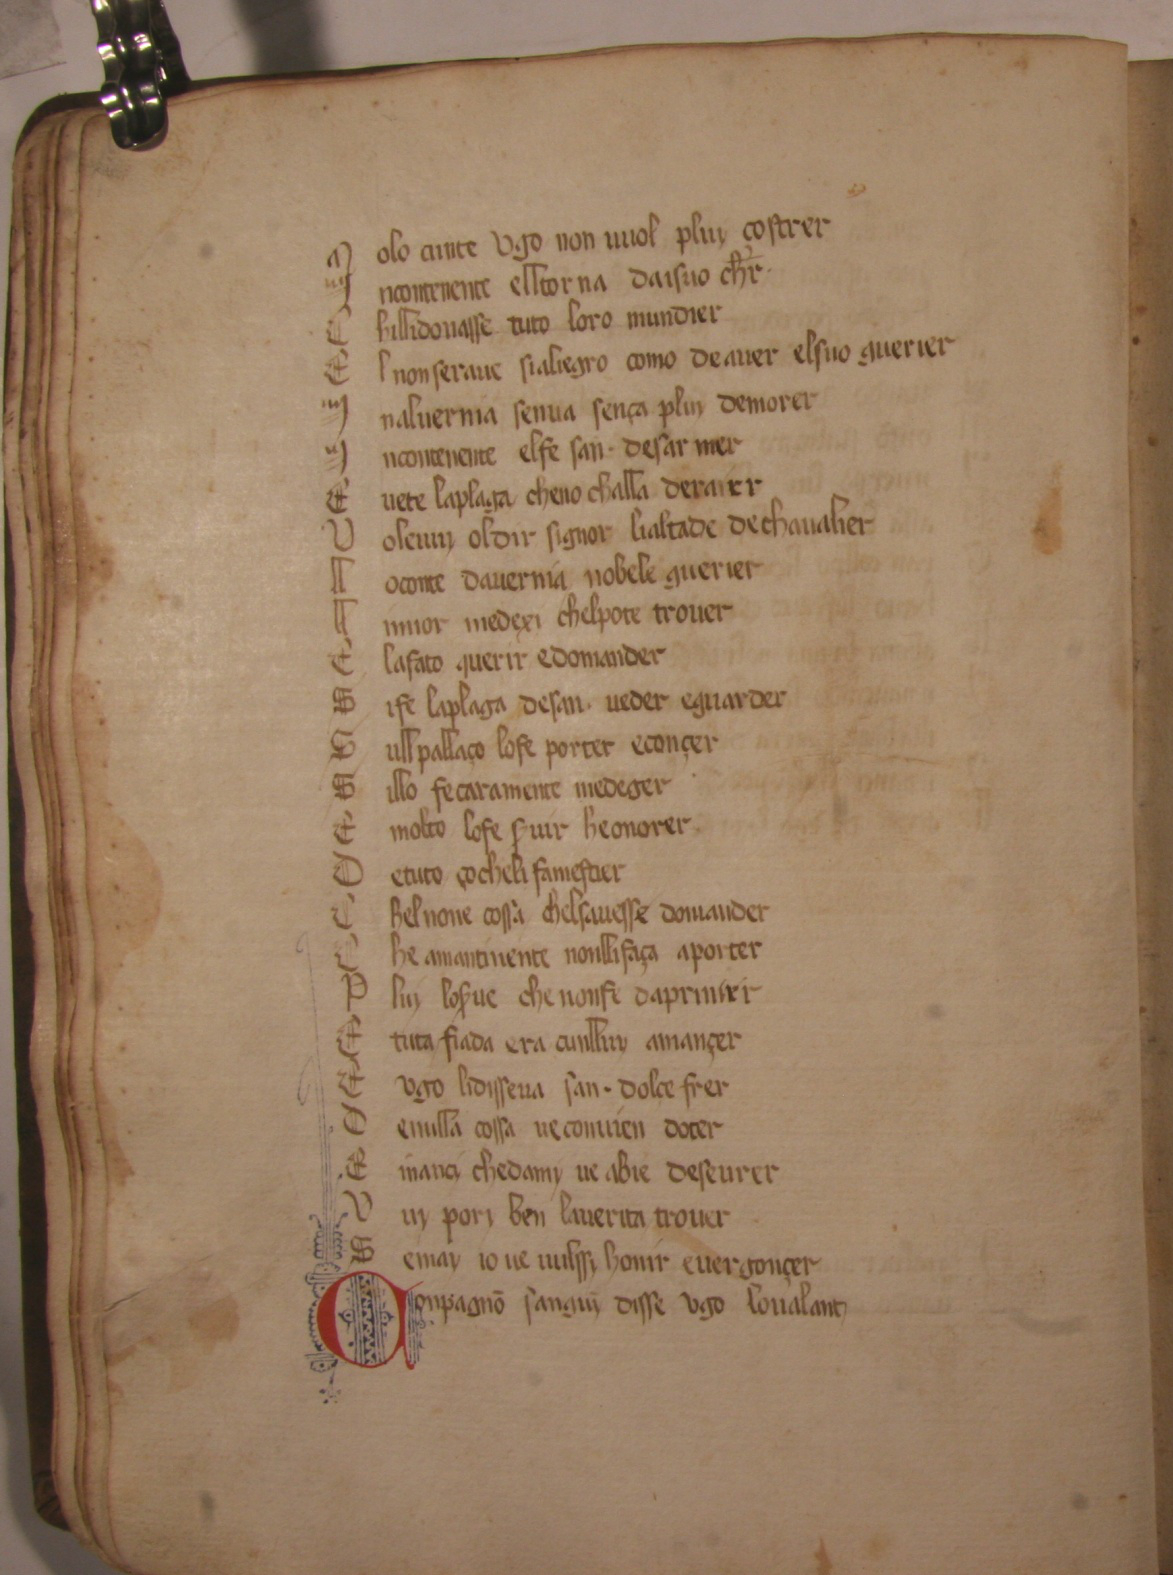 M olo cunte vgo non uuol pluy costrer
I ncontenente ell torna da i suo chr̄
C hilli donasse tuto loro mundier
E l non seraue si aliegro como de auer el suo guerier
I n aluernia sen ua sença pluy demorer
I ncontenente el fe san· desarmer
E uete la plaga che no challa derarer
V oleuuy oldir signor lialtade de chaualier
L o conte d auernia nobele guerier
L i miior medexi chel pote trouer
E la fato querir e domander
S i fe la plaga de san· ueder e guarder
S ull pallaço lo fe porter e conçer
S i llo fe caramente medeger
E molto lo fe ꝑuir he onorer
D e tuto ço che li fa mestier
C hel non e cossa chel sauesse domander
C he amantinente no nlli faça aporter
P luy lo ꝑue che non fe da primier
E tuta fiada era cunlluy a mançer
E vgo li disseua san· dolce frer
D e nulla cossa ue conuien doter
E inanci che da my ue abie deseurer
V uy pori ben la uerita trouer
S e may io ue uulssy honir e uergonçer
Conpagnō sanguī disse vgo lo ualant